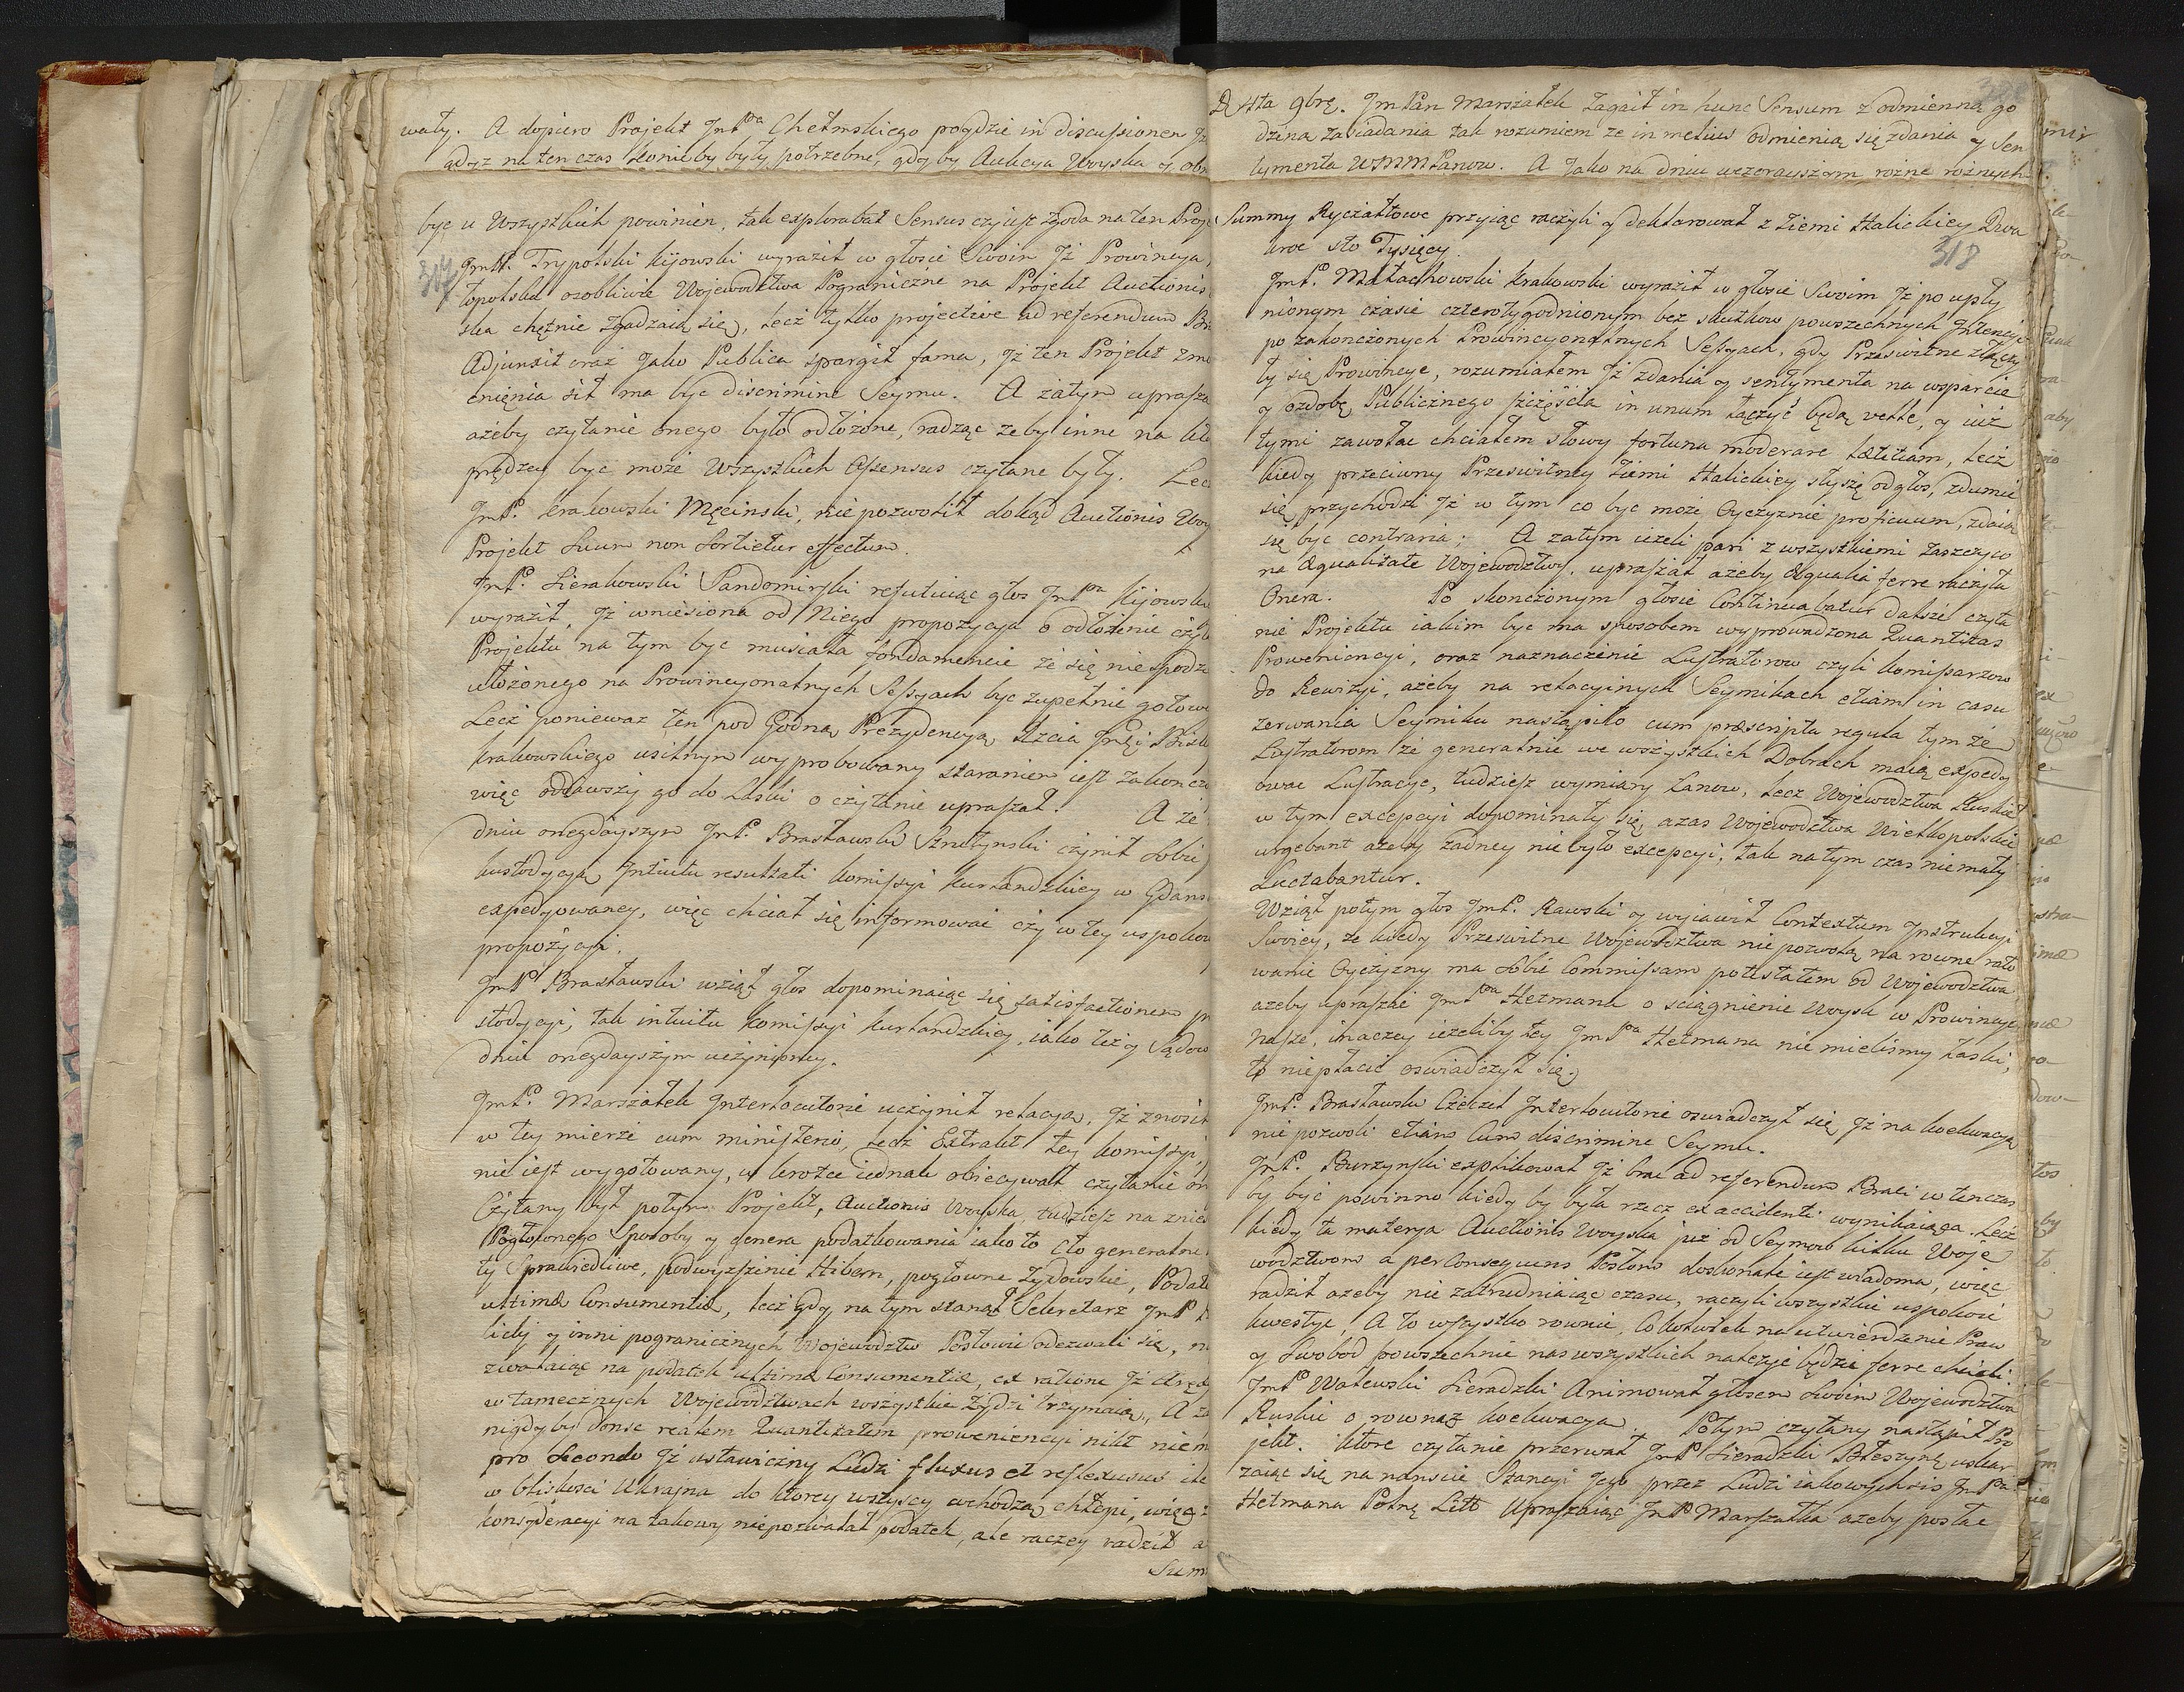 wały. A dopiero Projekt JmPna Chełmskiego poydzie in discussionem
gdyz na ten czas konie by były potrzebne, gdyby Aukcya Woyska y
byc u Wszystkich powinien, tak explorabat Sensus czyiest zgoda na ten
317
JmP. Trypolski kijowski wyraził w głosie Swoin Jż Prowincya
łopolska osobliwie Wojewodztwa Pograniczne na Projekt Auctionis
ska chętnie zgadzaią się, lecż tylko projective ad referendum
Adjunxit oraz Jako Publica spargit fama, Jż ten Projekt
cnięnia sit ma byc discrimine Seymu. A zatym
ażeby czytanie onego było odłożone, radząc zeby inne na
prędzey być może Wszystkich Assensus czytane były.
JmP. krakowski Męcinski, nie pozwolił dokąd Auctionis
Projekt Suum non Sortietur effectum.
JmP. Sierakowski Sandomirski refutuiąc głos JmPna
wyraził, Jż wniesiona od Niego propozycya o odłożenie
Projektu na tym byc musiała fondamencie że się nie
ułożonego na Prowincyonalnych Sessyach byc zupełnie
Lecż poniewaz ten pod Godną Prezydencyą
krakowskiego usilnym wyprobowany staraniem iest
więc oddawszy go do Laski o czytanie upraszał. A że
dniu onegdayszym JmP. Brasławski czynił Sobie
kustodycyą Intuitu resultati komissyi kurlandzkiey w
expedyowaney, więc chciał się informowac czy w tey
propożycyi.
JmP Brasławski wziął głos dopominaiąc się satisfactionem
stodycyi, tak intuitu komissyi kurlandzkiey, iako też y
dniu onegdayszym uczynioney.
JmP. Marszałek Interlocutorie uczynił relacyą, Jż znosił
w tey mierże cum ministerio, lecż Extrakt tey komissyi,
nie iest wygotowany, w krotce iednak obiecywał czytanie
Czytany był potym Projekt, Auctionis Woyska, tudziesz na
Pogłownego Sposoby y genera podatkowania iako to Cło generalne
ty Sprawiedliwe, podwyzszenie Hibern, pogłowne Zydowskie,
ultimæ Consumentiæ, lecż gdy na tym stanął Sekretarz JmP
licky y inni pogranicznych Wojewodztw Posłowie odezwali się,
zwalaiąc na podatek ultimæ Consumentiæ, ex ratione Jż
w tamecżnych Wojewodztwach wszystkie Żydzi trzymaią, A
nigdyby Sonse realem Quantitatem proweniencyi nikt
pro Secondo Jż ustawiczny Ludzi fluxus et reflexusus
w bliskosci Ukrajna do ktorey wszyscy uchodzą chłopi, więc
konsyderacyi na takowy niepozwalał podatek, ale raczey radził
D 4ta 9brę. JmPan Marszałek Zagaił in hunc Sensum z odmienną go
dziną zasiadania tak rozumiem ze in melius odmienią się zdania y Sen
tymenta WJMMPanow. A Jako na dniu wczorayszym rożne rożnych
Summy Ryczałtowe przyiąc raczyli y deklarował z Ziemi Halickiey Dwa
kroc sto Tysięcy.
318
JmP. Małachowski krakowski wyraził w głosie Swoim Jż po upły
nionym czasie czterotygodnionym bez skutkow powszechnych Intencyi
po zakonczonych Prowincyonalnych Sessyach, gdy Prześwitne złączy
ły się Prowincye, rozumiałem Jż zdania y sentymenta na wsparcie
y ozdobę Publicznego szczęścia in unum łączyć będą velle, y iuż
tymi zawołac chciałem słowy fortuna moderare Lætitiam, lecż
kiedy przeciwny Prześwitney Ziemi Halickiey słyszę odgłos, zdumieć
się przychodzi Jż w tym co byc może Oyczyznie proficuum, zdaią
się być contraria; A zatym ieżeli pari z wszystkiemi zaszczyco
na Aqualitate Wojewodztwy, upraszał ażeby Aqualia ferre raczyła
Onera. Po skonczonym głosie Continuabatur dalsze czyta
nie Projektu iakim byc ma sposobem wyprowadzona Quantitas
Proweniencyi, oraz naznaczenie Lustratorow czyli komissarzow
do Rewizyi, ażeby na relacyinych Seymikach etiam in casu
zerwania Seymiku nastąpiło cum præscripta regula tymże
Lustratorom że generalnie we wszystkich Dobrach maią expedy
owac Lustracye, tudziesz wymiary Lanow, lecz Wojewodztwa Ruskie
w tym excepcyi dopominały się, azas Wojewodztwa Wielkopolskie
urgebant ażeby żadney nie było excepcyi, tak na tym czas niemały
Luctabantur.
Wziął potym głos JmP. Rawski y wyiawił Contextum Jnstrukcyi
Swoiey, ze kiedy Prześwitne Wojewodztwa nie pozwolą na rowne rato
wanie Oyczyzny ma Sobie Commissam potestatem od Wojewodztwa
ażeby upraszać JmPna Hetmana o sciągnienie Woysk w Prowincye
nasze, inaczey ieżeliby tey JmPna Hetmana nie mielismy łaski,
to nie płacić oswiadczył się.
JmP. Brasławski Interlocutorie oswiadczył się Jż na koekwacyą
nie pozwoli etiam Cum discrimine Seymu.
JmP. Burzynski explikował Jż brac ad referendum Braci w tenczas
by być powinno kiedy by była rzecz ex accidenti wynikaiąca. Lecż
kiedy ta materya Auctionis Woyska już od Seymow kilku Woje
wodztwom a per Consequens Posłom doskonale iest wiadoma, więc
radził ażeby nie zatrudniaiąc czasu, raczyli wszystkie uspokoić
kwestye, A to wszystko rownie, Cokolwiek na utwierdzenie Praw
y Swobod powszechnie nas wszystkich należyć będzie ferre chcieli.
JmP Walewski Sieradzki Animował głosem Swoim Wojewodztwa
Ruskie o rowną koekwacyą. Potym czytany nastąpił Pro
jekt. ktore czytanie przerwał JmP Sieradzki uskar
zaiąc się na nanscie Stancyi Jego przez Ludzi iakowychsis JmPna
Hetmana Polnę Litt Upraszaiąc JmP Marszałka ażeby posłac